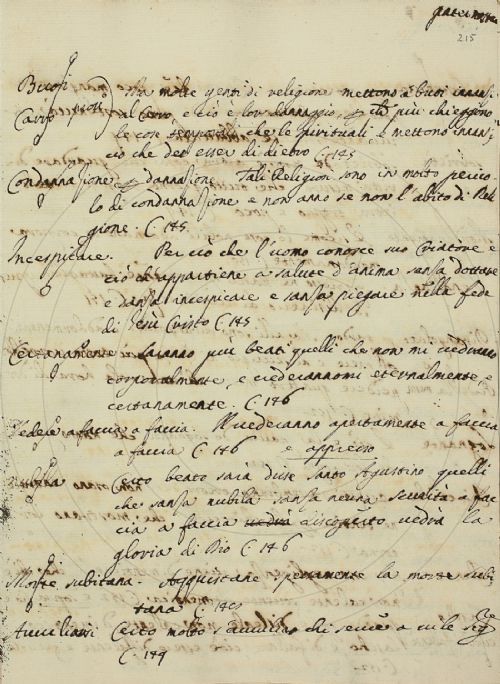 paternostri
215
Buoi } Ma molte genti di religione mettono i buoi innanzi
Carro prov. } al Carro, e ciò è lor dannaggio, che più chieggiono
le cose temporali che le spirituali, e mettono innanzi
ciò che dee esser di dietro C. 145
Condannazione e dannazione. Tali Religiosi sono in molto perico-
lo di condannazione e non anno se non l'abito di Reli-
gione. C. 145
Incespicare. Perciò che l'uomo conosce suo Criatore e
ciò ch'appartiene a salute d'anima sanza dottare
e sanza incespicare e sanza piegare nella fede
di Iesu Cristo C. 145
Certanamente. Saranno più beati quelli che non mi viederanno
corporalmente, e crederannomi eternalmente e
certanamente. C. 146
Vedere a faccia a faccia. Il vederanno apertamente a faccia
a faccia C. 146 e appresso
Nubila Certo beato sarà disse Santo Agustino quelli
che sanza nubila sanza neuna scurità a fac-
cia a faccia vedrà discoverto vedrà la
gloria di Dio C. 146
Morte subitana. Acquistane spessamente la morte subi-
tana C. 140
Avviliarsi Certo molto s'avvilia chi serve a vile sig.re
C. 149